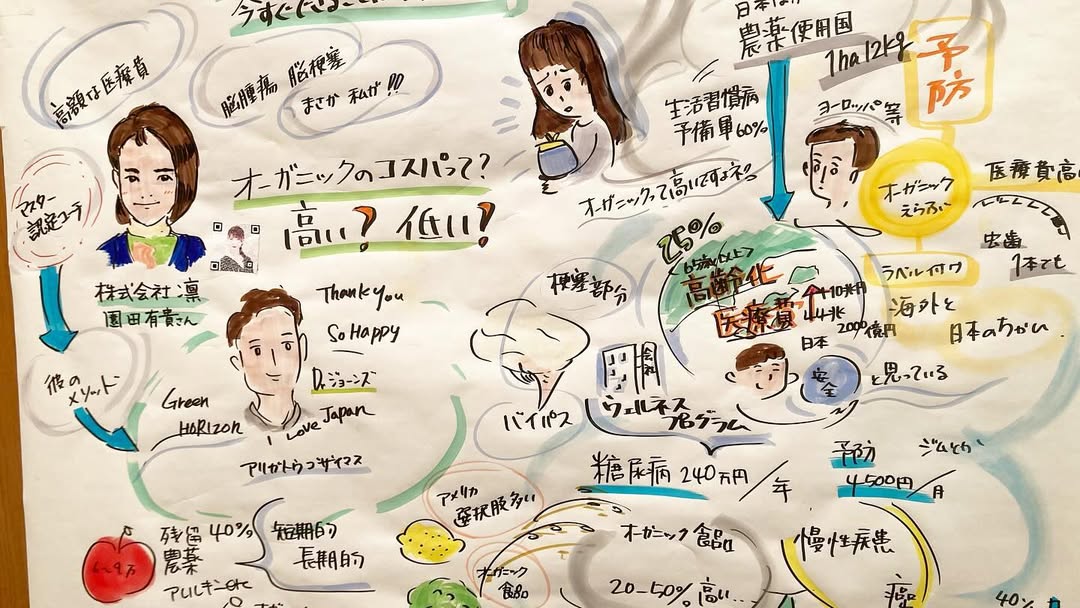 今すぐできること
高額な医療費
脳腫瘍 脳梗塞
まさか 私が!!
マスター
認定コーチ
オーガニックのコスパって?
高い? 低い?
株式会社 凛
園田有貴さん
農薬使用国
1ha12kg
予防
生活習慣病
予備軍60%
ヨーロッパ等
オーガニックって高いですよネ。
オーガニック
えらぶ
医療費高い
虫歯
1本でも
ラベル付ワ
海外と
日本のちがい
25%
65歳以上
高齢化
医療費
日本
安全
と思っている
梗塞部分
バイパス
会社
ウェルネス
プログラム
Thank you
So Happy
Dr.ジョーンズ
I Love Japan
彼の
メソッド
Green
HORIZON
アリガトウゴザイマス
糖尿病 240万円/年
予防 ジムとか
4500円/月
アメリカ
選択肢多い
残留 40%
農薬
短期的
長期的
アレルギーetc
オーガニック
食品
オーガニック食品
20-50%高い..
慢性疾患
癌
40%